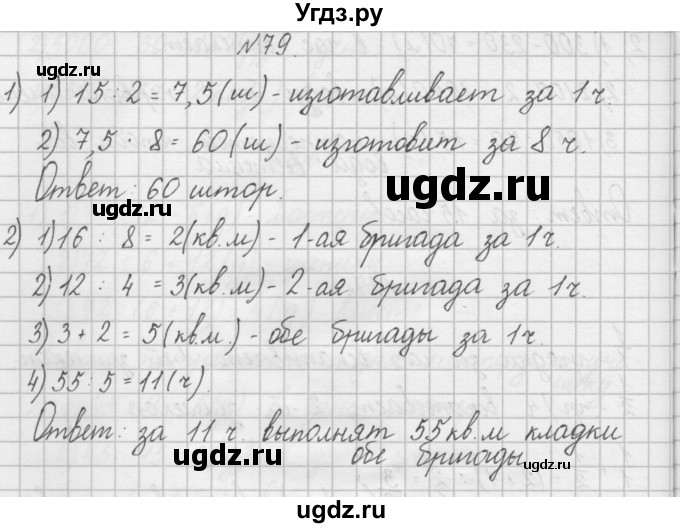 Угдз.ру
№79.
1) 1) 15 : 2 = 7,5 (ш) - изготавливает за 1 ч.
2) 7,5 · 8 = 60 (ш) - изготовит за 8 ч.
Ответ: 60 штор.
ugdz.ru
ugdz.ru
2) 1) 16 : 8 = 2 (кв.м) - 1-ая бригада за 1ч.
ugdz.ru
2) 12 : 4 = 3 (кв.м) - 2-ая бригада за 1ч.
3) 3 + 2 = 5 (кв.м.) - обе бригады за 1ч.
ugdz.ru
4) 55 : 5 = 11 (ч).
Ответ: за 11 ч. выполнят 55 кв.м кладки
обе бригады
ugdz.ru
ugdz.ru
ugdz.ru